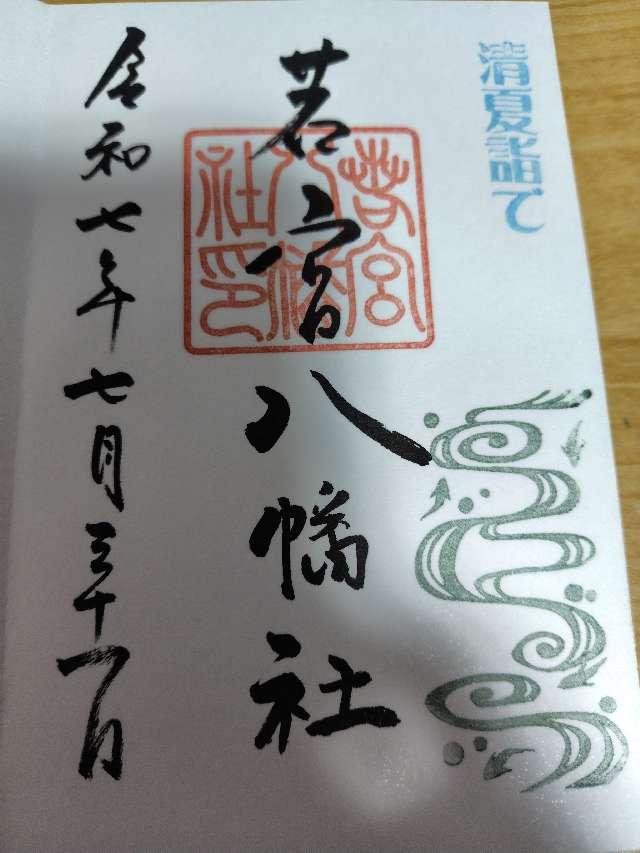 清夏詣で
若宮八幡社
若宮
八幡
社印
令和七年七月三十一日